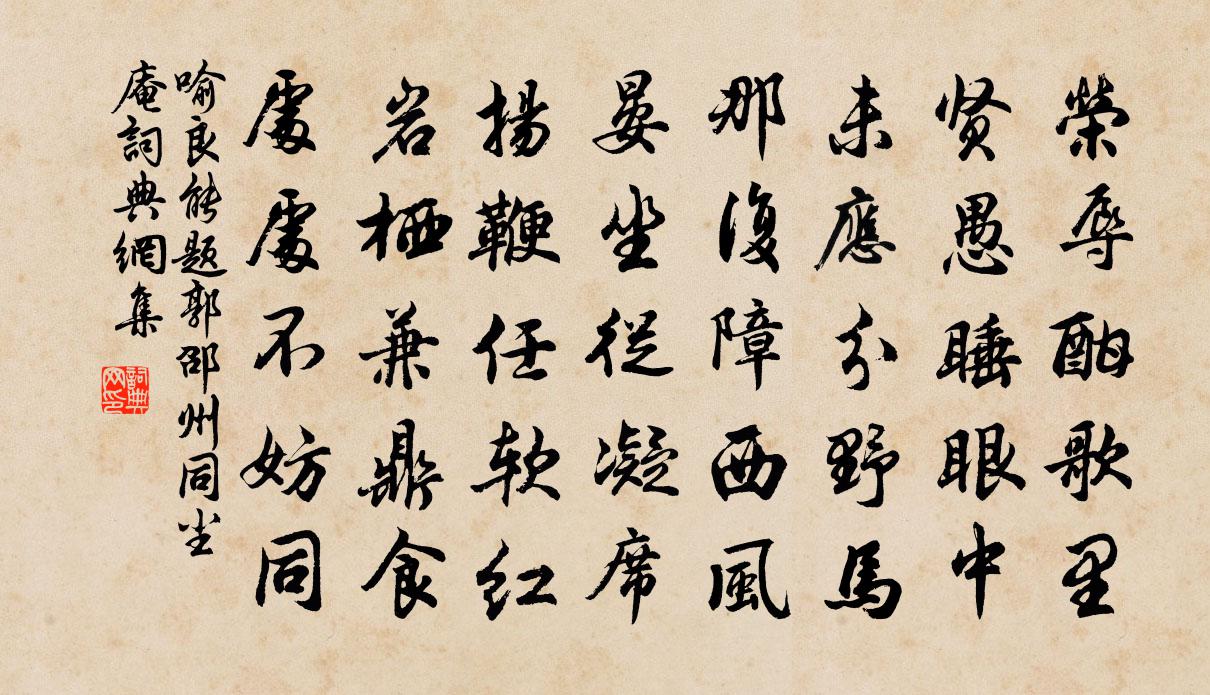 榮辱酣歌里
贤愚睡眼中
未應分野馬
那復障西風
晏坐從凝席
揚鞭任软红
岩栖兼鼎食
處處不妨同
喻良能题郭邵州同尘
庵詞典網集
詞典网印